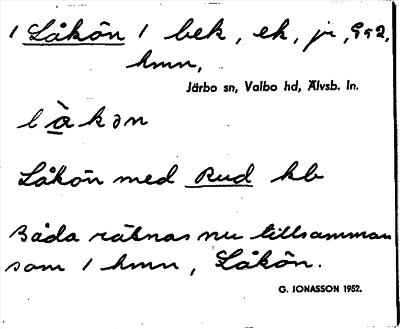 1 Låkön 1 bek, ek, jr, 992,
hmn,
Järbo sn, Valbo hd, Älvsb. ln.
l à k ə n
Låkön med Rud kb
Båda räknas nu tillsamman
som 1 hmn, Låkön.
G. JONASSON 1952.